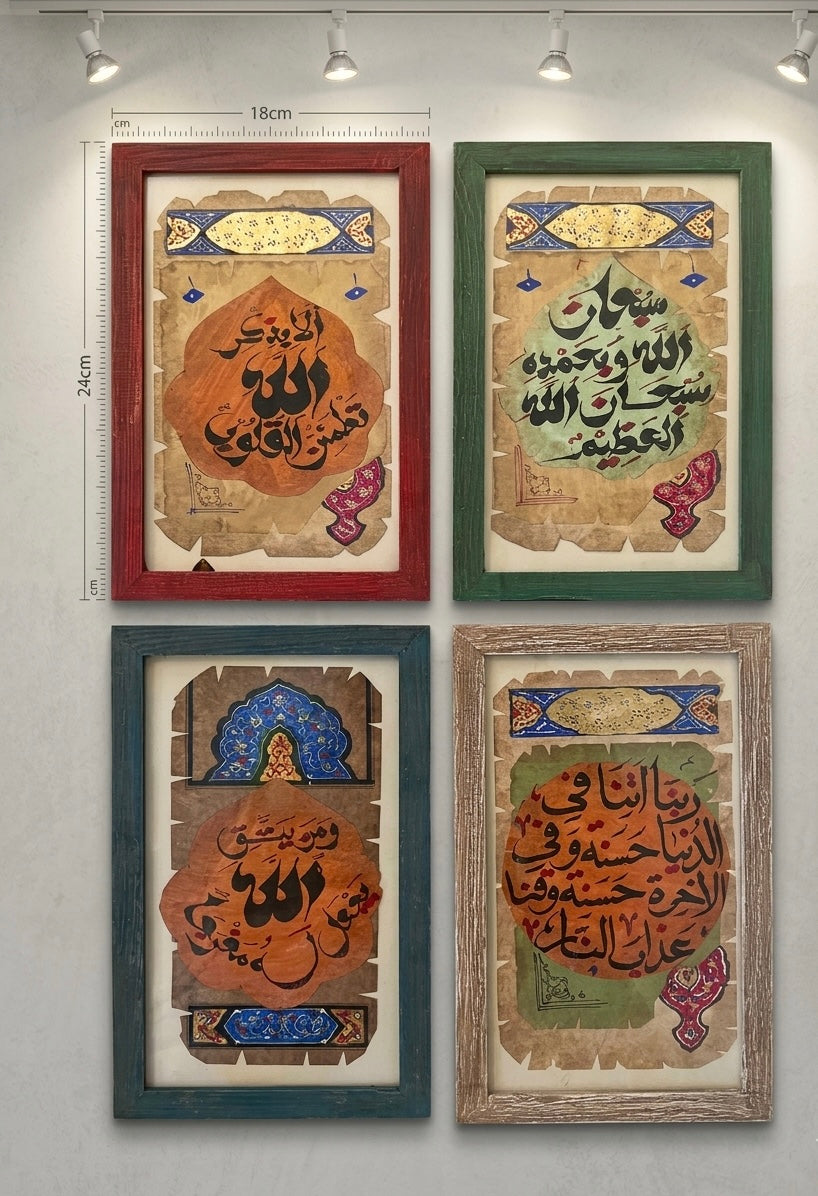 18cm
cm
24cm
cm
ألا بذكر
الله
تطمئن القلوب
سبحان
الله وبحمده
سبحان الله
العظيم
ومن يتق
الله
يجعل له مخرجا
ربنا اتنا في
الدنيا حسنة و في
الاخرة حسنة وقنا
عذاب النار